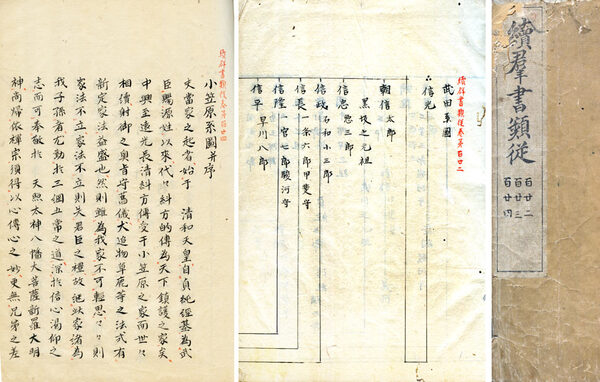 續羣書類従
百廿二
百廿三
百廿四
續群書類従巻第百廿二
武田系圖
信光
朝信太郎
黒坂之元祖
信忠悪三郎
信政石和小三郎
信長一条六郎甲斐守
信隆一宮七郎駿河守
信平早川八郎
續群書類従巻第百廿四
小笠原系圖并序
夫當家之起者始于 清和天皇自貞純經基為武
臣賜源姓以來代々糾方的傳為天下鎮護之家矣
中興至遠光長清糾方傳受于小笠原之家而世々
相續射御之奥旨弓馬儀犬追物草鹿等之法式有
新定家法益盛也然則雖為我家不可輕思々々則
家法不立家法不立則失君臣之禮故絶於家諸為
我子孫者尤勤於三個五常之道深於信心渇仰之
志而可奉敬於 天照太神八幡大菩薩新羅大明
神尚歸依禅宗須得以心傳心之妙更無兄弟之差